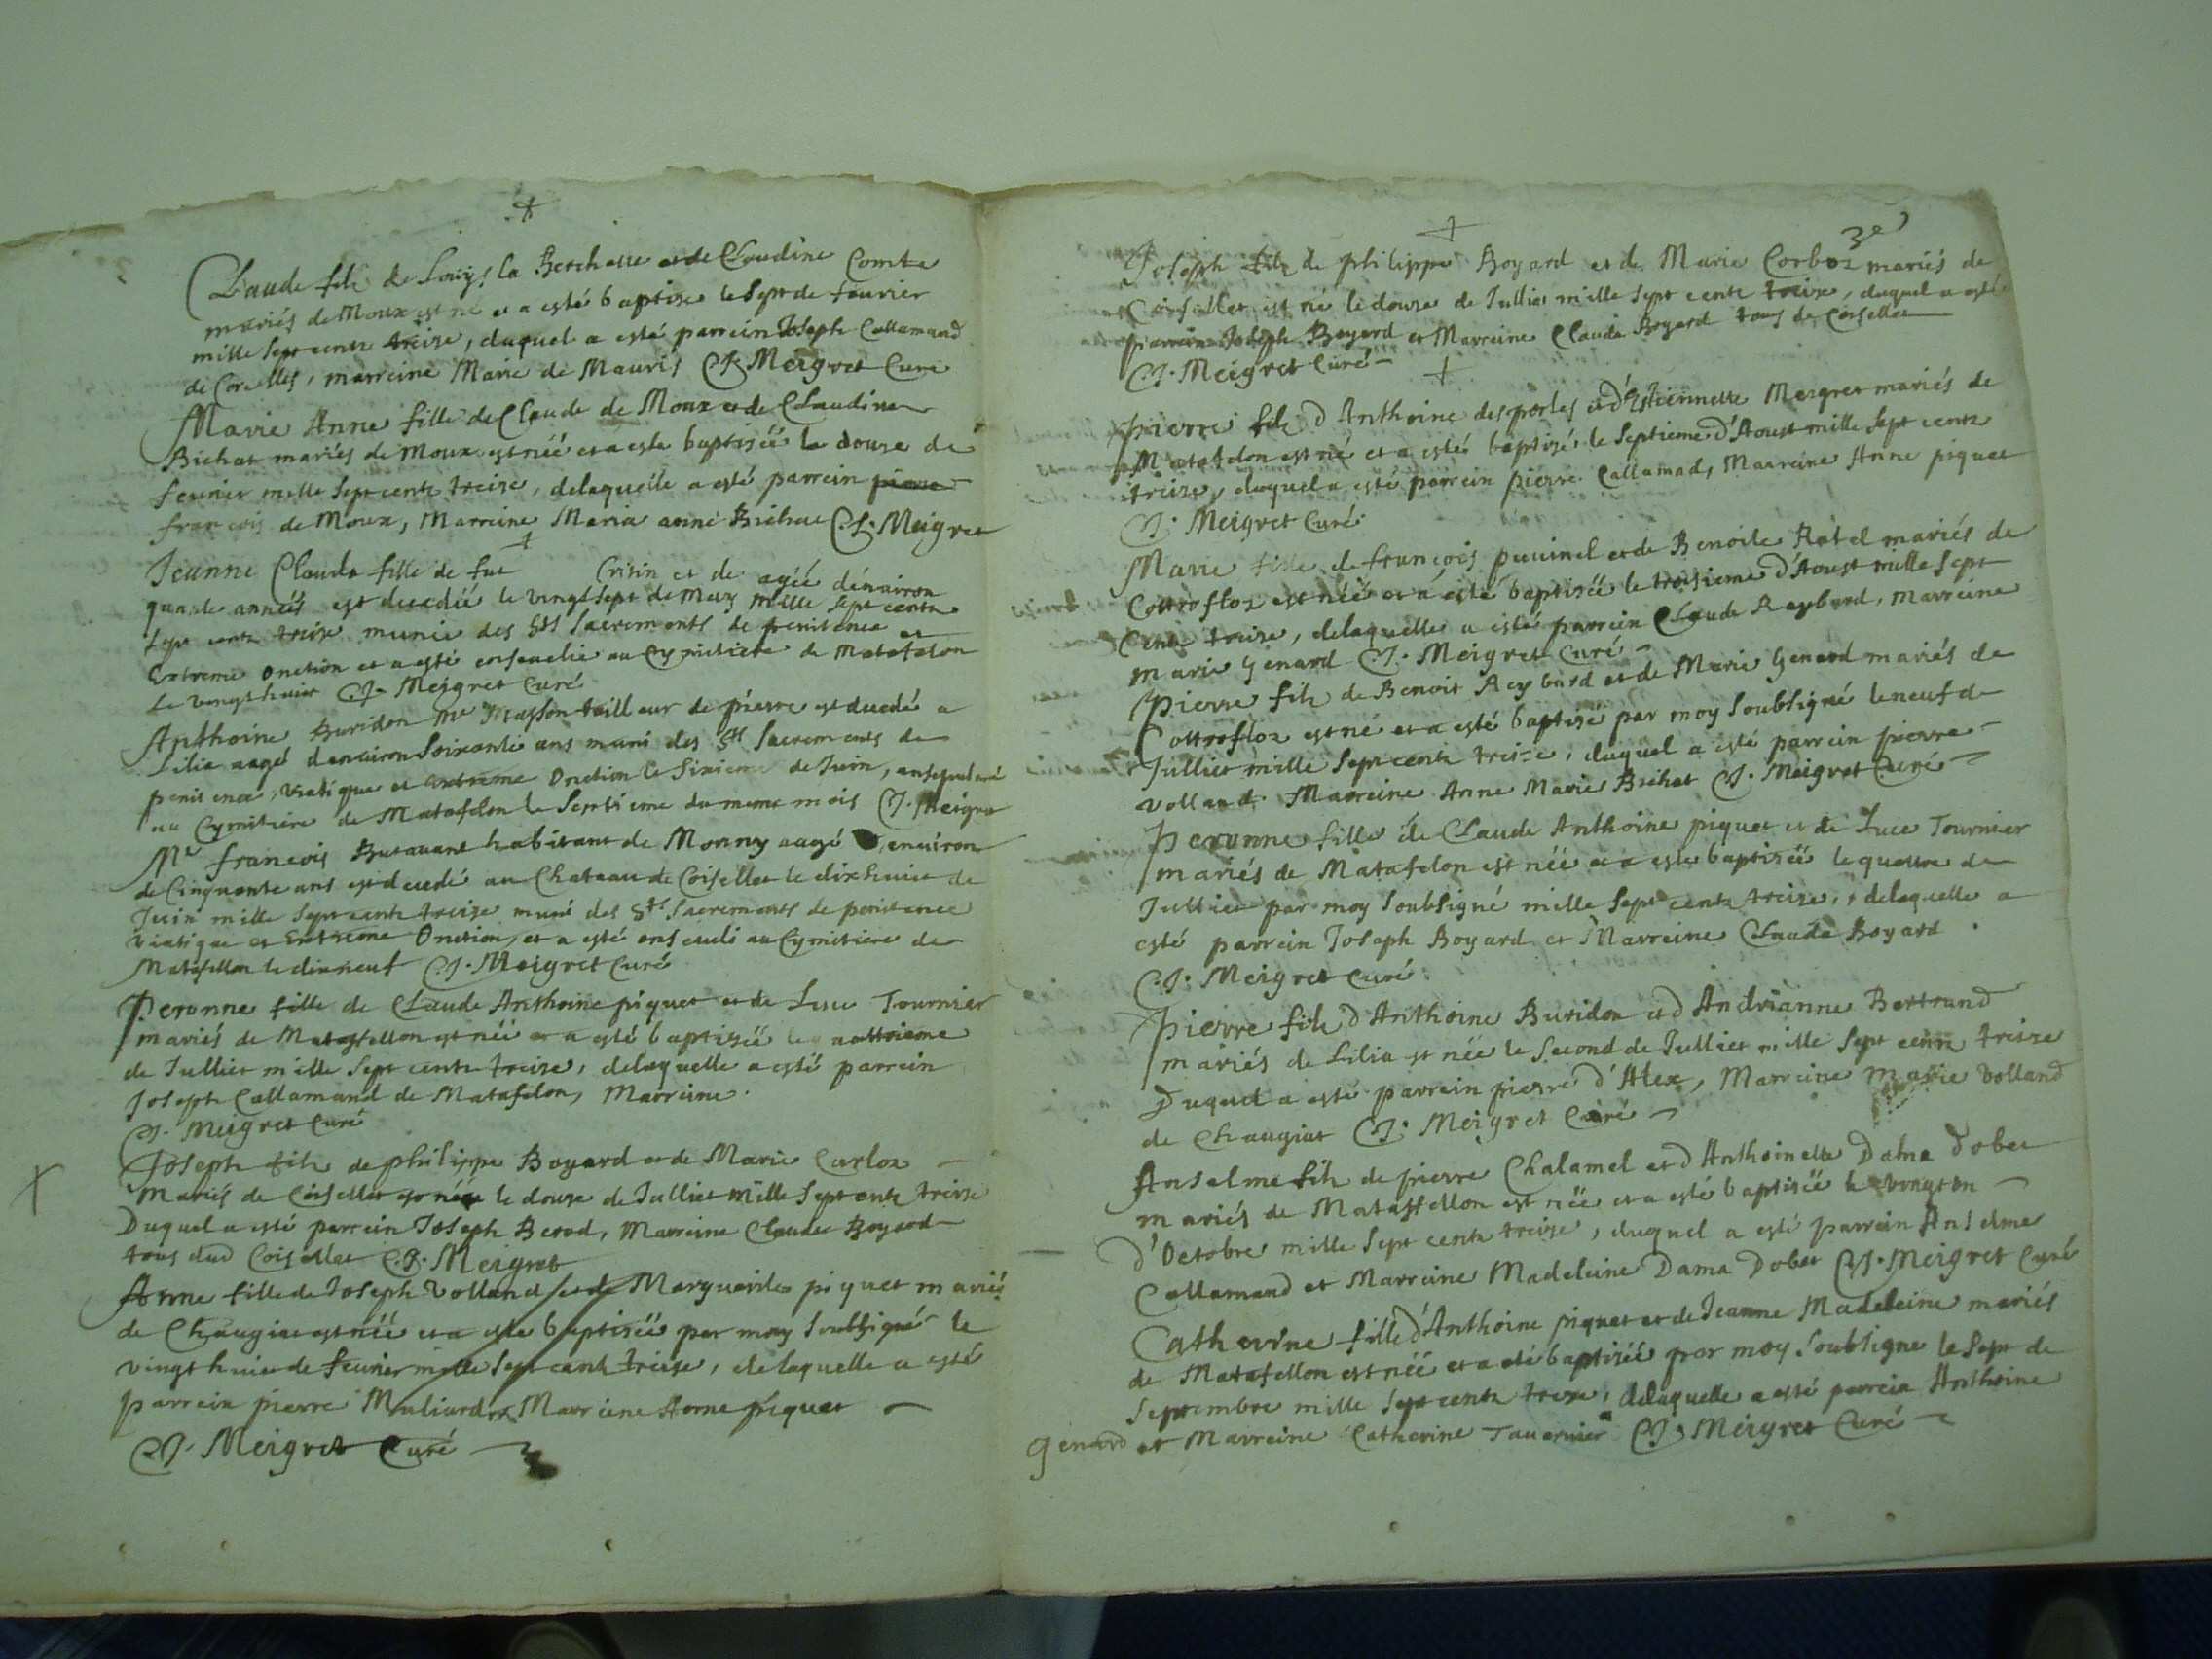 Claude fils de Louys la Berchette et de Claudine Comte
mariés de Moux est né et a esté baptise le sept de feuvrier
mille sept cents treize, duquel a esté parrein Joseph Callamand
de Corcelles, marreine Marie de Mauris C. J. Meigret Curé
Marie Anne fille de Claude de Moux et de Claudine
Bichat mariés de Moux est néé et a esté baptiséé le douze de
feurier mille sept cents treize, delaquelle a esté parrein pierre
françois de Moux, Marreine Maria anne Bichat C. J. Meigret
Jeanne Claude fille de fut Crisin et de agéé denuiron
quarte années est decedéé le vingt sept de May mille sept cents
sept cents treize munie des Sts Sacrements de penitence et
Extreme onction et a esté enseuelie au Cymitiere de Matafelon
le vingt huict C. J. Meigret Curé
Anthoine Buridon Me Masson tailleur de pierre est decedé a
Lilia aagé denuiron soixante ans muni des Sts Sacrements de
penitence, viatique et extreme Onction le sixieme de Juin,
au Cymitiere de Matafelon le septieme du meme mois C. J. Meigret
Mr françois Butauant habitant de Monny aagé enuiron
de Cinquante ans est decedé au Chateau de Coisellet le dixhuict de
Juin mille sept cents treize muni des Sts Sacrements de penitence
viatique et Extreme Onction, et a esté enseueli au Cymitiere de
Matafellon le dixneuf C. J. Meigret Curé
Peronne fille de Claude Anthoine piquet et de Luce Tournier
mariés de Mataffellon est néé et a esté baptiséé le
de Julliet mille sept cents treize, delaquelle a esté parrein
Joseph Callamand de Matafelon, Marreine.
C. J. Meigret Curé
Joseph fils de philippe Boyard et de Marie Carloz
Mariés de Coisellet est né le douze de Julliet mille sept cents treize
Duquel a esté parrein Joseph Berod, Marreine Claude Boyard
tous dud Coisellet C. J. Meigret
Anne fille de Joseph Volland et de Marguerite piquet mariés
de Chaugiat est néé et a esté baptiséé par moy soubsigné le
vingt huict de feurier mille sept cents treize, delaquelle a esté
parrein pierre Muliard et Marreine Anne piquet
C. J. Meigret Curé
3e
Joseph fils de philippe Boyard et de Marie Corboz mariés de
Coisellet est né le douze de Julliet mille sept cents treize, duquel a esté
parrein Joseph Boyard et Marreine Claude Boyard tous de Coisellet
C. J. Meigret Curé
Pierre fils d Anthoine desportes et d'Estiennette Meigret mariés de
Matafelon est né et a esté baptizé le Septieme d'Aoust mille sept cents
treize, duquel a esté parrein pierre Callamad, Marreine Anne piquet
C. J. Meigret Curé
Marie fille de françois puuinel et de Benoite Ratel mariés de
Cottofloz est néé et a esté baptiséé le troisieme d'Aoust mille sept
Cents treize, delaquelle a esté parrein Claude Reybard, marreine
marie Genard C. J. Meigret Curé
Pierre fils de Benoit Reybard et de Marie Genard mariés de
Cottrofloz est né et a esté baptisé par moy soubsigné le neuf de
Julliet mille sept cents treize, duquel a esté parrein pierre
volland. Marreine Anne Marie Bichat C. J. Meigret Curé
Peronne fille de Claude Anthoine piquet et de Luce Tournier
mariés de Matafelon est néé et a esté baptiséé le quattre de
Julliet par moy soubsigné mille sept cents treize, delaquelle a
esté parrein Joseph Boyard et Marreine Claude Boyard.
C. J. Meigret Curé
Pierre fils d Anthoine Buridon et d Andrianne Bertrand
mariés de Lilia est néé le second de Julliet mille sept cents treize
Duquel a esté parrein pierre d'Alex, Marreine marie Volland
de Chaugiat C. J. Meigret Curé
Anselme fils de pierre Chalamel et d Anthoinette Dama Dobet
mariés de Mataffellon est néé et a esté baptiséé le vingt un
d'Octobre mille sept cents treize, duquel a esté parrein Anselme
Callamand et Marreine Madeleine Dama Dobet C. J. Meigret Curé
Catherine fille d'Anthoine piquet et de Jeanne Madeleine mariés
de Matafellon est néé et a eté baptiséé par moy soubsigne le sept de
Septembre mille sept cents treize, delaquelle a esté parrein Anthoine
Genard et Marreine Catherine Tauernier C. J. Meigret Curé